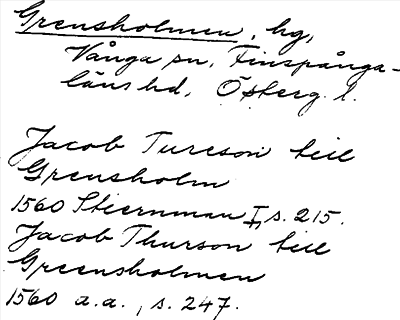 Grensholmen, hg,
Vånga sn, Finspånga-
läns hd, Österg. l.
Jacob Tureson teil
Grensholm
1560 Stiernman I, s. 215.
Jacob Thurson teil
Greensholmen
1560 a.a., s. 247.